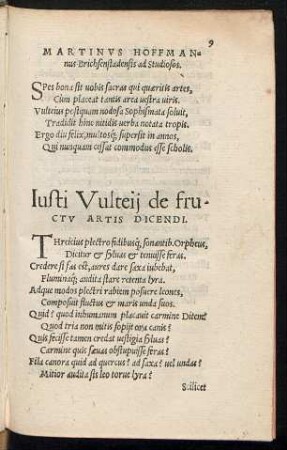 9
MARTINVS HOFFMAN-
nus Brichsenstadensis ad Studiosos.
SPes bona sit uobis sacras qui quæritis artes,
Cùm placeat tantis area uestra uiris.
Vulteius postquam nodosa Sophismata soluit,
Tradidit hinc nitidis uerba notata tropis.
Ergo diu felix, multosq́; supersit in annos,
Qui nusquam cessat commodus esse scholis.
Iusti Vulteij de fru-
CTV ARTIS DICENDI.
THreicius plectro fidibusq́; sonantib. Orpheus,
Dicitur & syluas & tenuisse feras.
Credere si fas est, aures dare saxa iubebat,
Fluminaq́; audita stare retenta lyra.
Adque modos plectri rabiem posuere leones,
Composuit fluctus & maris unda suos.
Quid? quod inhumanum placauit carmine Ditem?
Quod tria non mitis sopijt ora canis?
Quis fecisse tamen credat uestigia syluas?
Carmine quis sæuas obstupuisse feras?
Fila canora quid ad quercus? ad saxa? uel undas?
Mitior audita sis leo torue lyra?
Scilicet